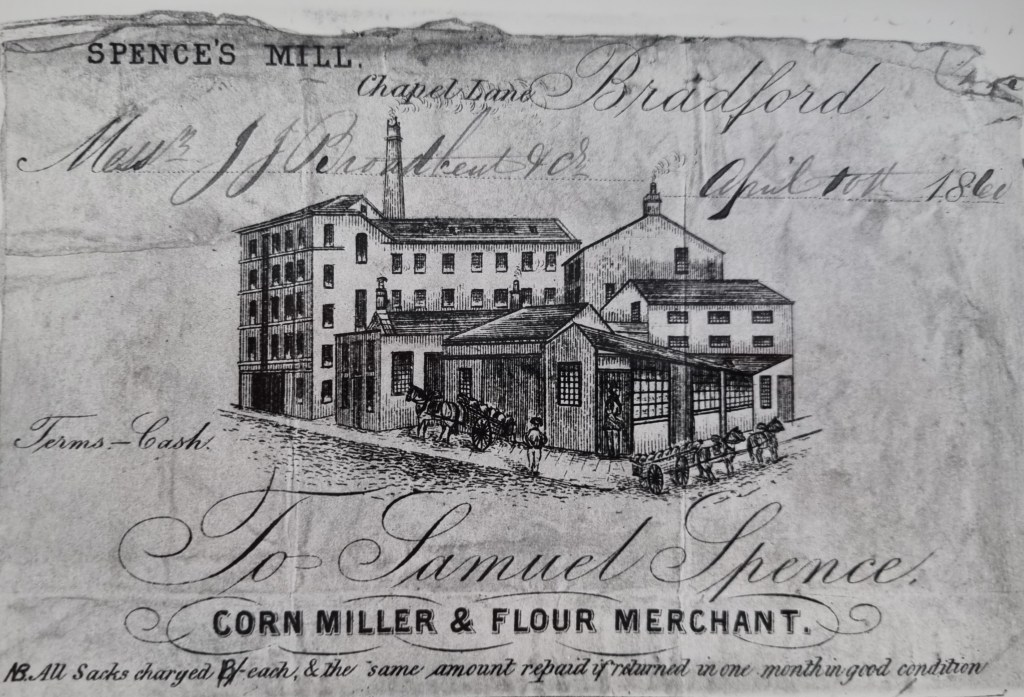 SPENCE'S MILL.
Chapel Lane Bradford
Messrs J J Broadbent & Co April 10th 1860
Terms - Cash.
To Samuel Spence.
CORN MILLER & FLOUR MERCHANT.
NB. All Sacks charged each, & the same amount repaid if returned in one month in good condition